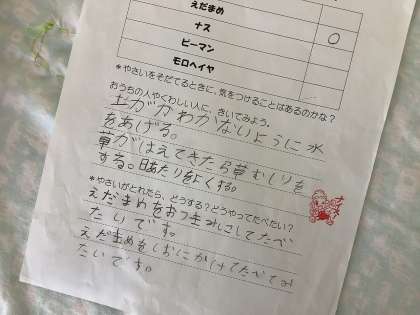 えだまめ
ナス
○
ピーマン
モロヘイヤ
*やさいをそだてるときに、気をつけることはあるのかな？
おうちの人やくわしい人に、きいてみよう。
土ががわかないように水
をあげる。
草がはえてきたら草むしりを
する。日あたりをよくする。
*やさいがとれたら、どうする？どうやってたべたい？
えだまめをおつまみにしてたべ
たいです。
えだまめをしおにかけてたべてみ
たいです。